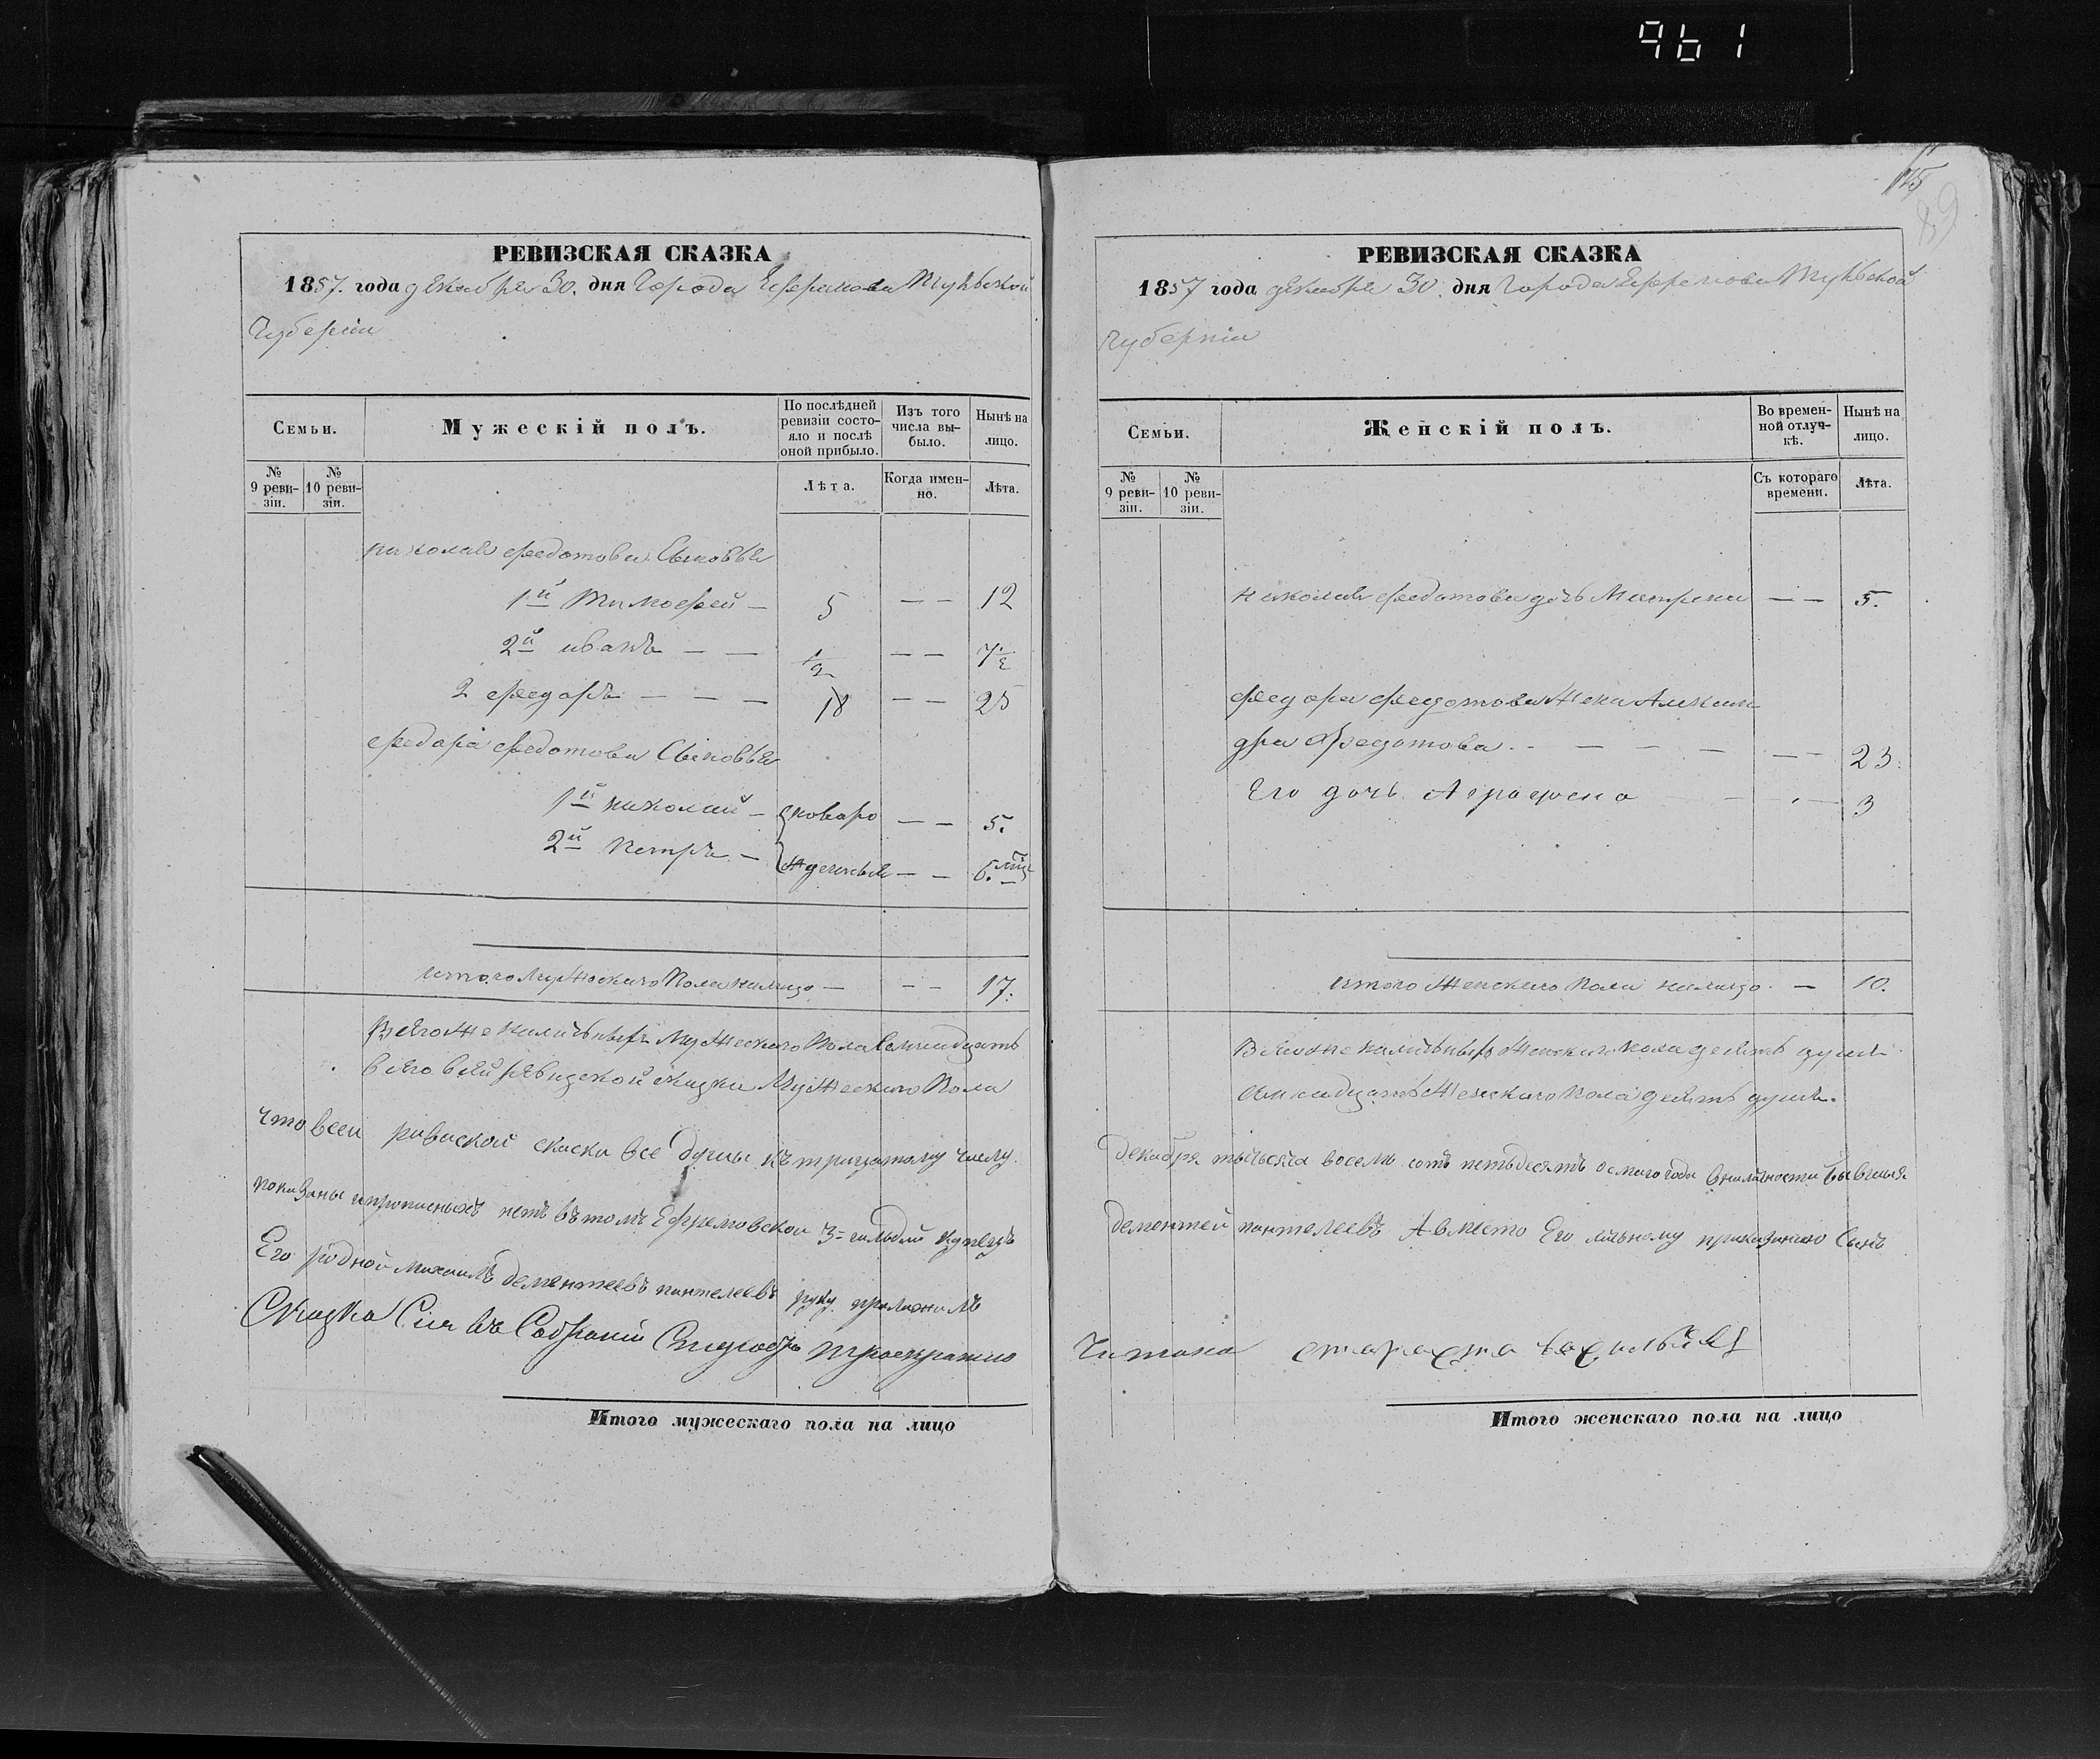 961
115
89
РЕВИЗСКАЯ СКАЗКА
1857. года декабря 30. дня Города Ефремова Тульской
Губернiи
Семьи.
Мужескiй полъ.
По послѣдней ревизiи состо-яло и послѣ оной прибыло.
Изъ того числа вы-было.
Нынѣ на лицо.
№ 9 реви-зiи.
№ 10 реви-зiи.
Лѣта.
Когда имен-но.
Лѣта.
николая федотова Сыновья
1й Тимофей — 5 — — 12
2й иванъ — — 1/2 — — 7 1/2
2 федоръ — — — 18 — — 25
федора федотова Сыновья
1й николай — новоро — — 5.
2й петръ — жденныя — — 6. мѣс
итого мужескаго Пола налицо — — — 17.
Всего же наличныхъ мужескаго Пола Семнадцать
всего всей ревизской скаски Мужескаго Пола
что всеи ревиской скаски все душы къ трицатому числу
показаны ипрописныхъ нетъ въ томъ Ефремовской 3-гильдии купецъ
Его родной михаилъ дементеевъ пантелеевъ руку приложилъ
Сказка Сiя въ Собранiи
Итого мужескаго пола на лицо
РЕВИЗСКАЯ СКАЗКА
1857 года декабря 30. дня Города Ефремова Тульской
Губернiи
Семьи.
Женскiй полъ.
Во времен-ной отлуч-кѣ.
Нынѣ на лицо.
№ 9 реви-зiи.
№ 10 реви-зiи.
Съ котораго времени.
Лѣта.
николая федотова дочь Матрена — — 5.
федора федотова Жена Алексан
дра Федотова. — — — — — — 23.
Его дочь Аграфена — — 3
итого Женскаго пола налицо — 10.
Всего же наличныхъ Женскаго пола десять душъ
Семнадцать Женскаго пола десять душъ.
декабря тысяча восемь сотъ петьдесятъ осмого года вналичности бывшыя
дементей пантелеевъ А вместо Его личному приказанию Сынъ
Читана староста
Итого женскаго пола на лицо